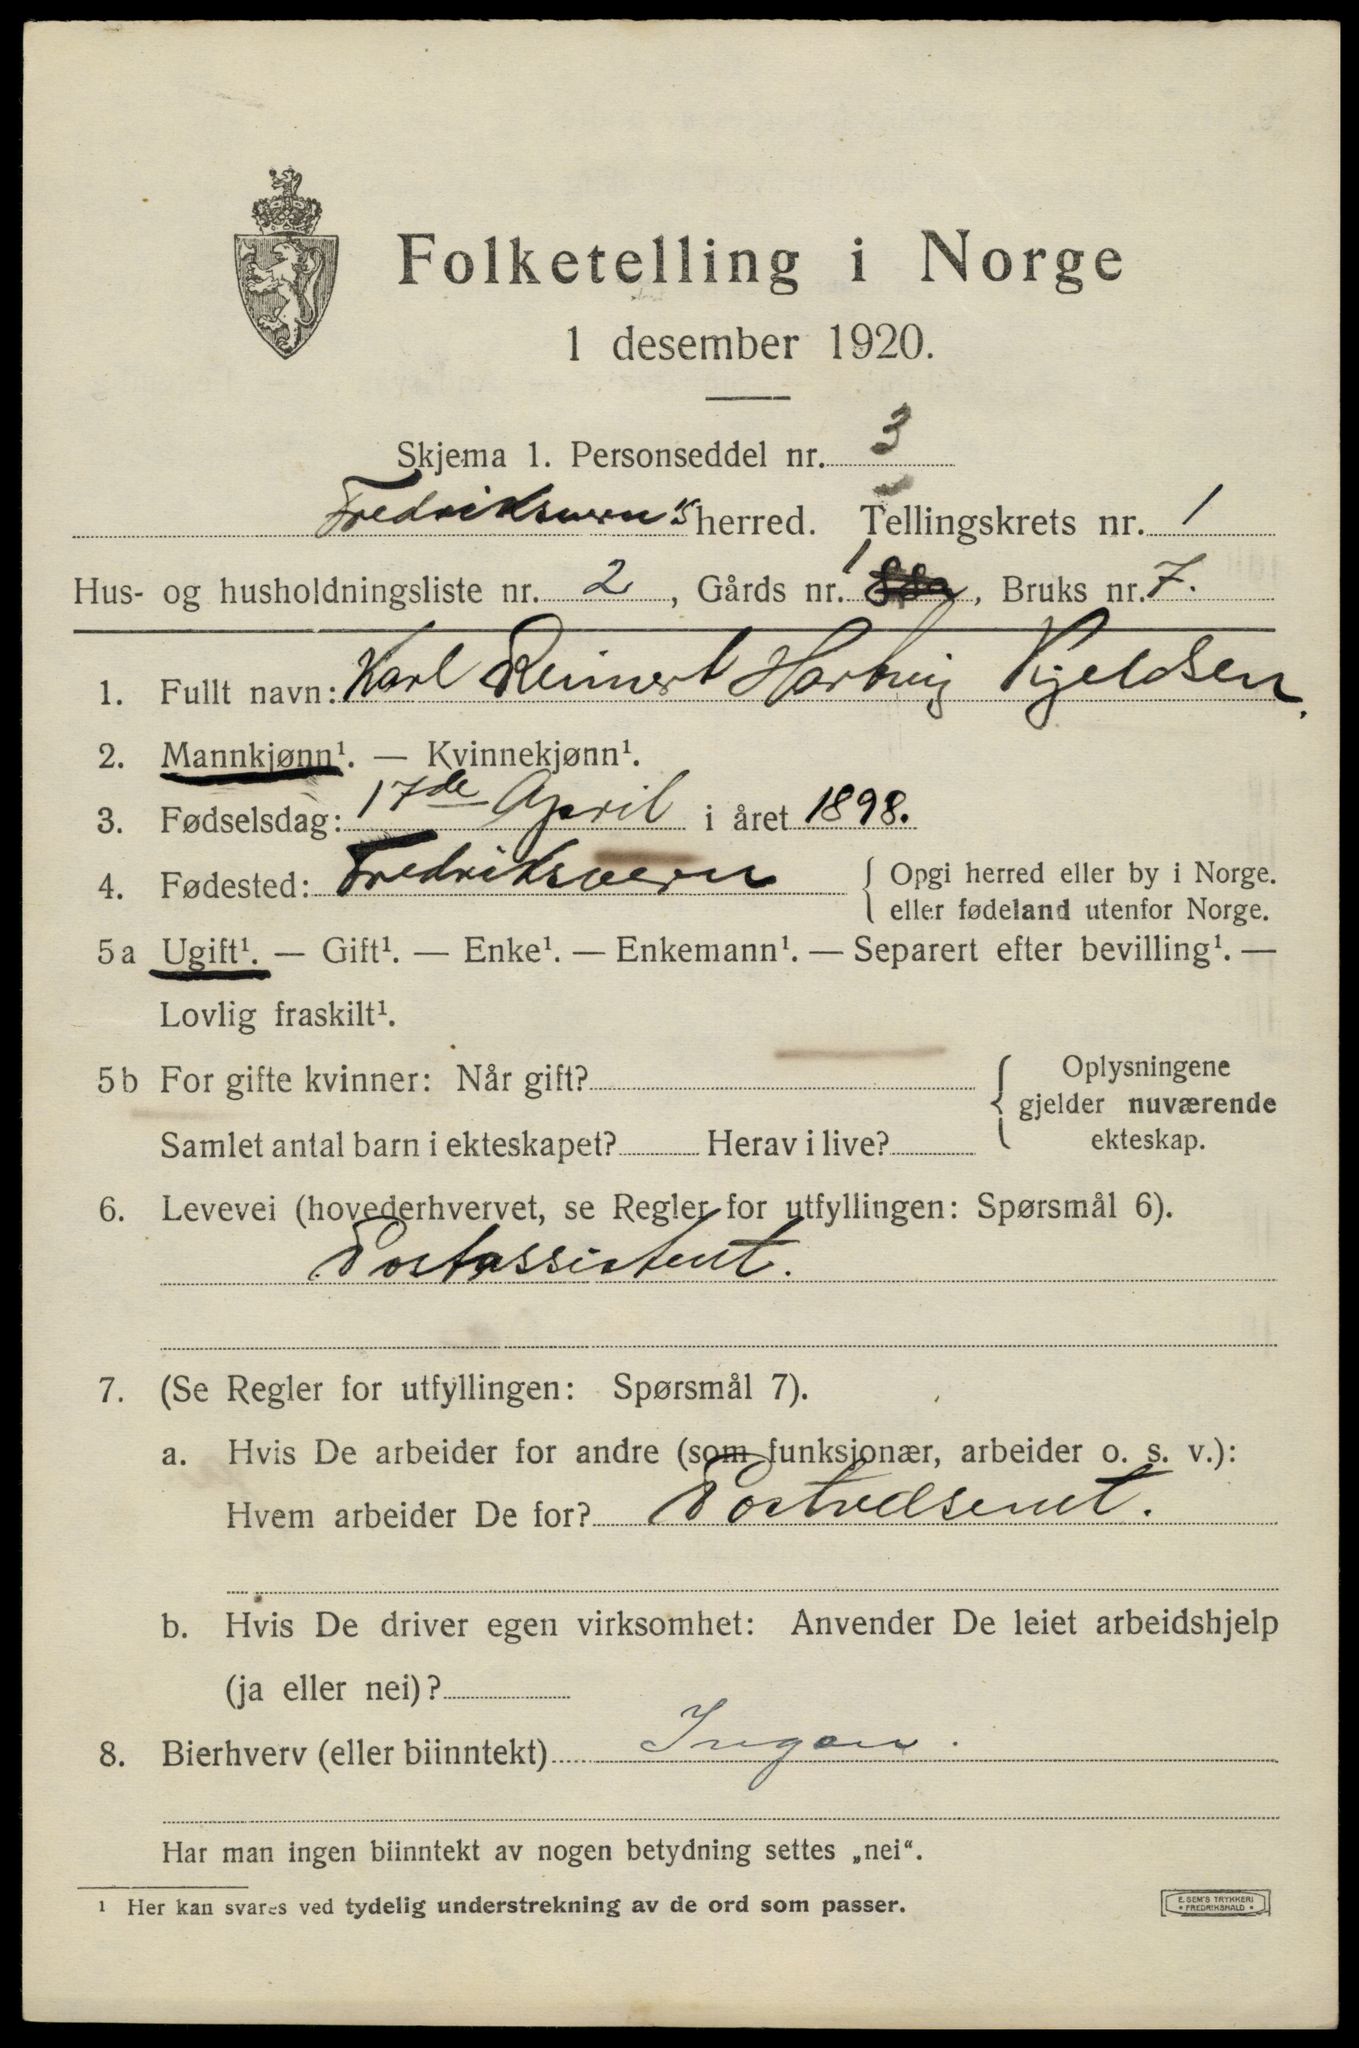 Folketelling i Norge
1 desember 1920.
Skjema 1. Personseddel nr. 3
Fredriksvern's herred. Tellingskrets nr. 1
Hus- og husholdningsliste nr. 2, Gårds nr. 1, Bruks nr. 7.
1. Fullt navn: Karl Reinert Hartvig Kjeldsen.
2. Mannkjønn¹. — Kvinnekjønn¹.
3. Fødselsdag: 17de April i året 1898.
4. Fødested: Fredriksvern { Opgi herred eller by i Norge.
eller fødeland utenfor Norge.
5 a Ugift¹. — Gift¹. — Enke¹. — Enkemann¹. — Separert efter bevilling¹. —
Lovlig fraskilt¹.
5 b For gifte kvinner: Når gift? { Oplysningene
gjelder nuværende
ekteskap.
Samlet antal barn i ekteskapet? Herav i live?
6. Levevei (hovederhvervet, se Regler for utfyllingen: Spørsmål 6).
Postassistent.
7. (Se Regler for utfyllingen: Spørsmål 7).
a. Hvis De arbeider for andre (som funksjonær, arbeider o. s. v.):
Hvem arbeider De for? Postvesenet.
b. Hvis De driver egen virksomhet: Anvender De leiet arbeidshjelp
(ja eller nei)?
8. Bierhverv (eller biinntekt) Ingen.
Har man ingen biinntekt av nogen betydning settes „nei“.
¹ Her kan svares ved tydelig understrekning av de ord som passer.
E. SEM'S TRYKKERI
FREDRIKSHALD